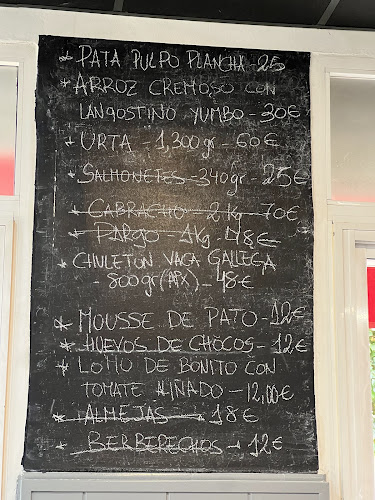 * PATA PULPO PLANCHA - 25
* ARROZ CREMOSO CON
LANGOSTINO YUMBO - 30€
* URTA - 1,300 gr - 60€
* SALMONETES - 340 gr - 25€
* CABRACHO - 2 Kg - 70€
* PARGO - 1 Kg - 48€
* CHULETÓN VACA GALLEGA
- 800 gr (APX) - 48€
* MOUSSE DE PATO - 12€
* HUEVOS DE CHOCOS - 12€
* LOMO DE BONITO CON
TOMATE ALIÑADO - 12,00€
* ALMEJAS - 18€
* BERBERECHOS - 12€